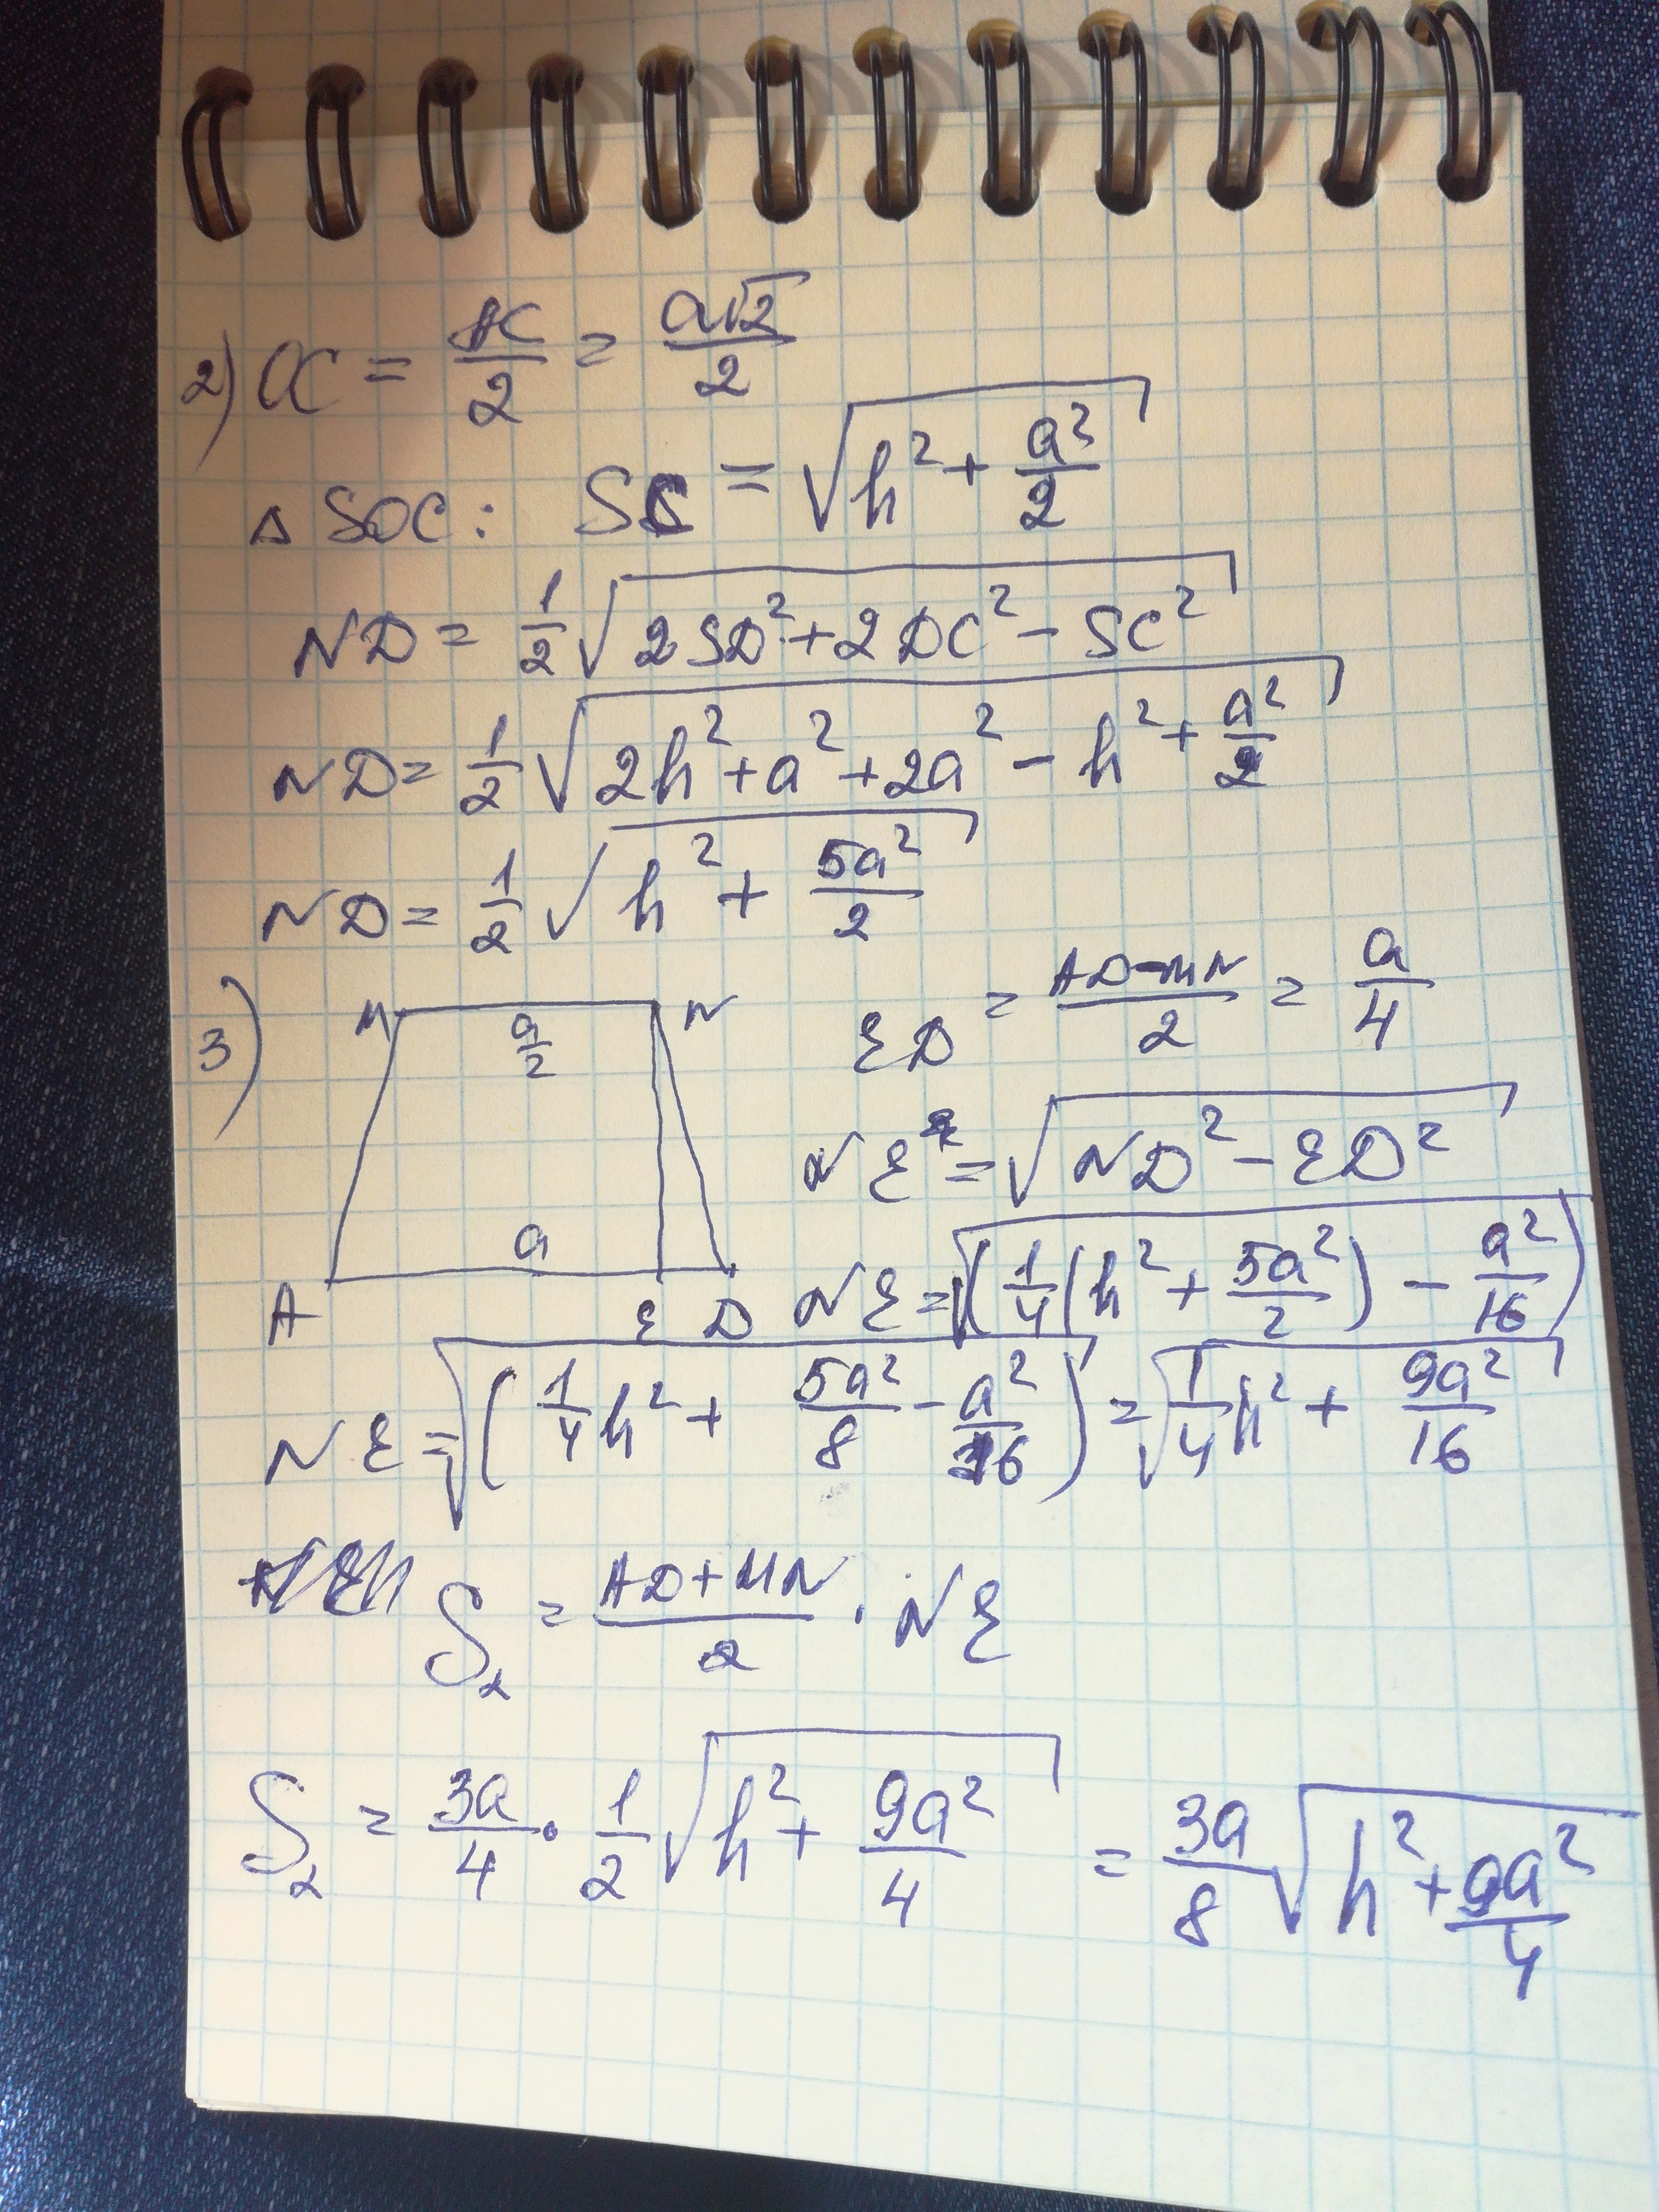 2) OC = AC/2 = a√2/2
△ SOC: SC = √(h² + a²/2)
ND = 1/2 √(2SD² + 2DC² − SC²)
ND = 1/2 √(2h² + a² + 2a² − h² + a²/2)
ND = 1/2 √(h² + 5a²/2)
3) M a/2 N
ED = AD−MN/2 = a/4
NE = √(ND² − ED²)
a
A E D
NE = √(1/4(h² + 5a²/2) − a²/16)
NE = √(1/4 h² + 5a²/8 − a²/16) = √(1/4 h² + 9a²/16)
S₂ = AD+MN/2 · NE
S₂ = 3a/4 · 1/2 √(h² + 9a²/4) = 3a/8 √(h² + 9a²/4)